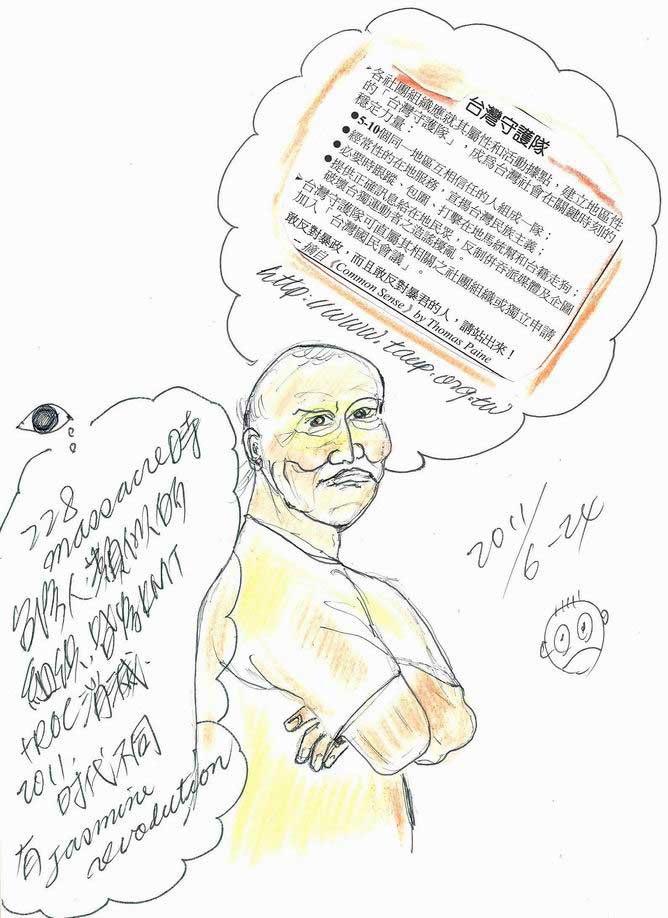 台灣守護隊
➢各社團組織應就其屬性和活動據點，建立地區性
的「台灣守護隊」，成為台灣社會在關鍵時刻的
穩定力量：
●5-10個同一地區互相信任的人組成一隊；
●經常性的在地服務，宣揚台灣民族主義；
●必要時跟蹤、包圍、打擊在地馬統幫和台籍走狗；
●提供正確訊息給在地民眾，反制併吞派媒體及企圖
破壞台獨運動者之造謠擾亂。
➢台灣守護隊可直屬其相關之社團組織或獨立申請
加入「台灣國民會議」。
敢反對暴政，而且敢反對暴君的人，請站出來！
－摘自《Common Sense》by Thomas Paine
http://www.taup.org.tw
228
massacre時
人類似的
組織, 皆為KMT
+ROC消滅.
2011,
時代不同
有Jasmine
revolution
2011/6-24